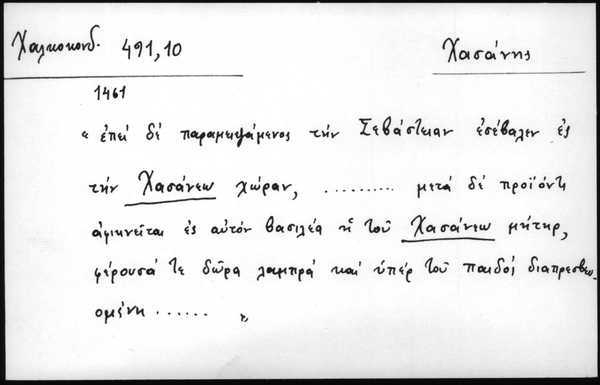 Χαλκοκονδ. 491,10 Χασάνης
1461
« ἐπεί δέ παραμειψάμενος τήν Σεβάστειαν ἐσέβαλεν ἐς
τήν Χασάνεω χώραν, .......... μετά δέ προϊόντι
ἀφικνεῖται ἐς αὐτόν βασιλέα ἡ τοῦ Χασάνεω μήτηρ,
φέρουσά τε δῶρα λαμπρά καί ὑπέρ τοῦ παιδός διαπρεσβευ-
ομένη ...... »